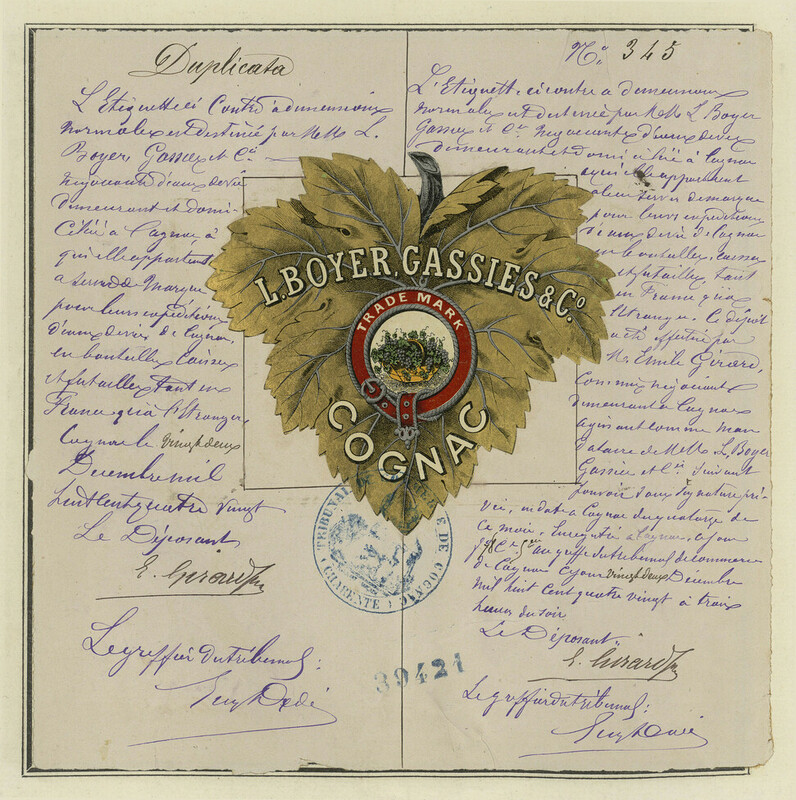 Duplicata
L'Etiquette ci Contre à dimensions
Normales est destinée par MM. L.
Boyer, Gassies et Cie
Négociants d'eaux de vie
demeurant et domi-
ciliés à Cognac, à
qu'elle appartient
à servir de Marque
pour leurs expéditions
d'eaux de vies de Cognac,
en bouteilles caisses
et futailles tant en
France qu'à l'Etranger.
Cognac le vingt deux
Décembre mil
huit cent quatre vingt
Le Déposant
E. Girard
Le greffier du tribunal:
No. 345
L'Etiquette ci contre à dimensions
Normales est destinée par MM. L. Boyer
Gassies et Cie Négociants d'eaux de vie
demeurant et domiciliés à Cognac
qu'elle appartient
à leur servir de marque
pour leurs expéditions
d'eaux de vie de Cognac
en bouteilles, caisses
et futailles, tant
en France qu'à
l'Etranger. Ce dépôt
a été effectué par
M. Emile Girard,
Commis négociant
demeurant à Cognac
agissant comme man
dataire de MM. L. Boyer
Gassies et Cie suivant
pouvoir sous signature pri-
vée, en date à Cognac du quatorze de
ce mois, Enregistré à Cognac, ce jour
au greffe du tribunal de commerce
de Cognac ce jour vingt deux Décembre
mil huit cent quatre vingt à trois
heures du soir
Le Déposant:
E. Girard
Le greffier du tribunal:
L. BOYER, GASSIES & Co.
TRADE MARK
COGNAC
TRIBUNAL DE COGNAC
CHARENTE
39421